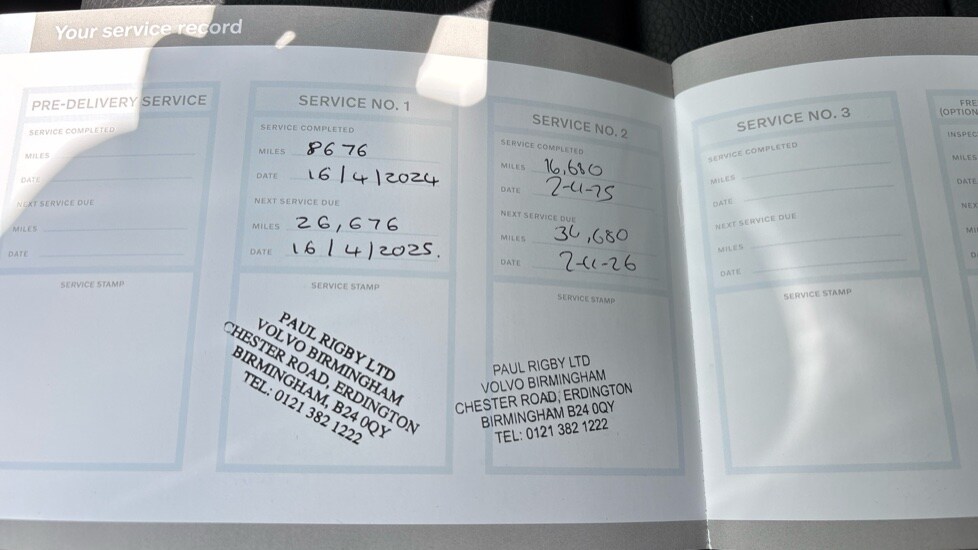 Your service record
PRE-DELIVERY SERVICE
SERVICE COMPLETED
MILES
DATE
NEXT SERVICE DUE
MILES
DATE
SERVICE STAMP
SERVICE NO. 1
SERVICE COMPLETED
MILES 8676
DATE 16/4/2024
NEXT SERVICE DUE
MILES 26,676
DATE 16/4/2025.
SERVICE STAMP
PAUL RIGBY LTD
VOLVO BIRMINGHAM
CHESTER ROAD, ERDINGTON
BIRMINGHAM, B24 0QY
TEL: 0121 382 1222
SERVICE NO. 2
SERVICE COMPLETED
MILES 16,680
DATE
NEXT SERVICE DUE
MILES
DATE
SERVICE STAMP
PAUL RIGBY LTD
VOLVO BIRMINGHAM
CHESTER ROAD, ERDINGTON
BIRMINGHAM B24 0QY
TEL: 0121 382 1222
SERVICE NO. 3
SERVICE COMPLETED
MILES
DATE
NEXT SERVICE DUE
MILES
DATE
SERVICE STAMP
FRE
(OPTION
INSPEC
MILES
DATE
NEX
MI
D